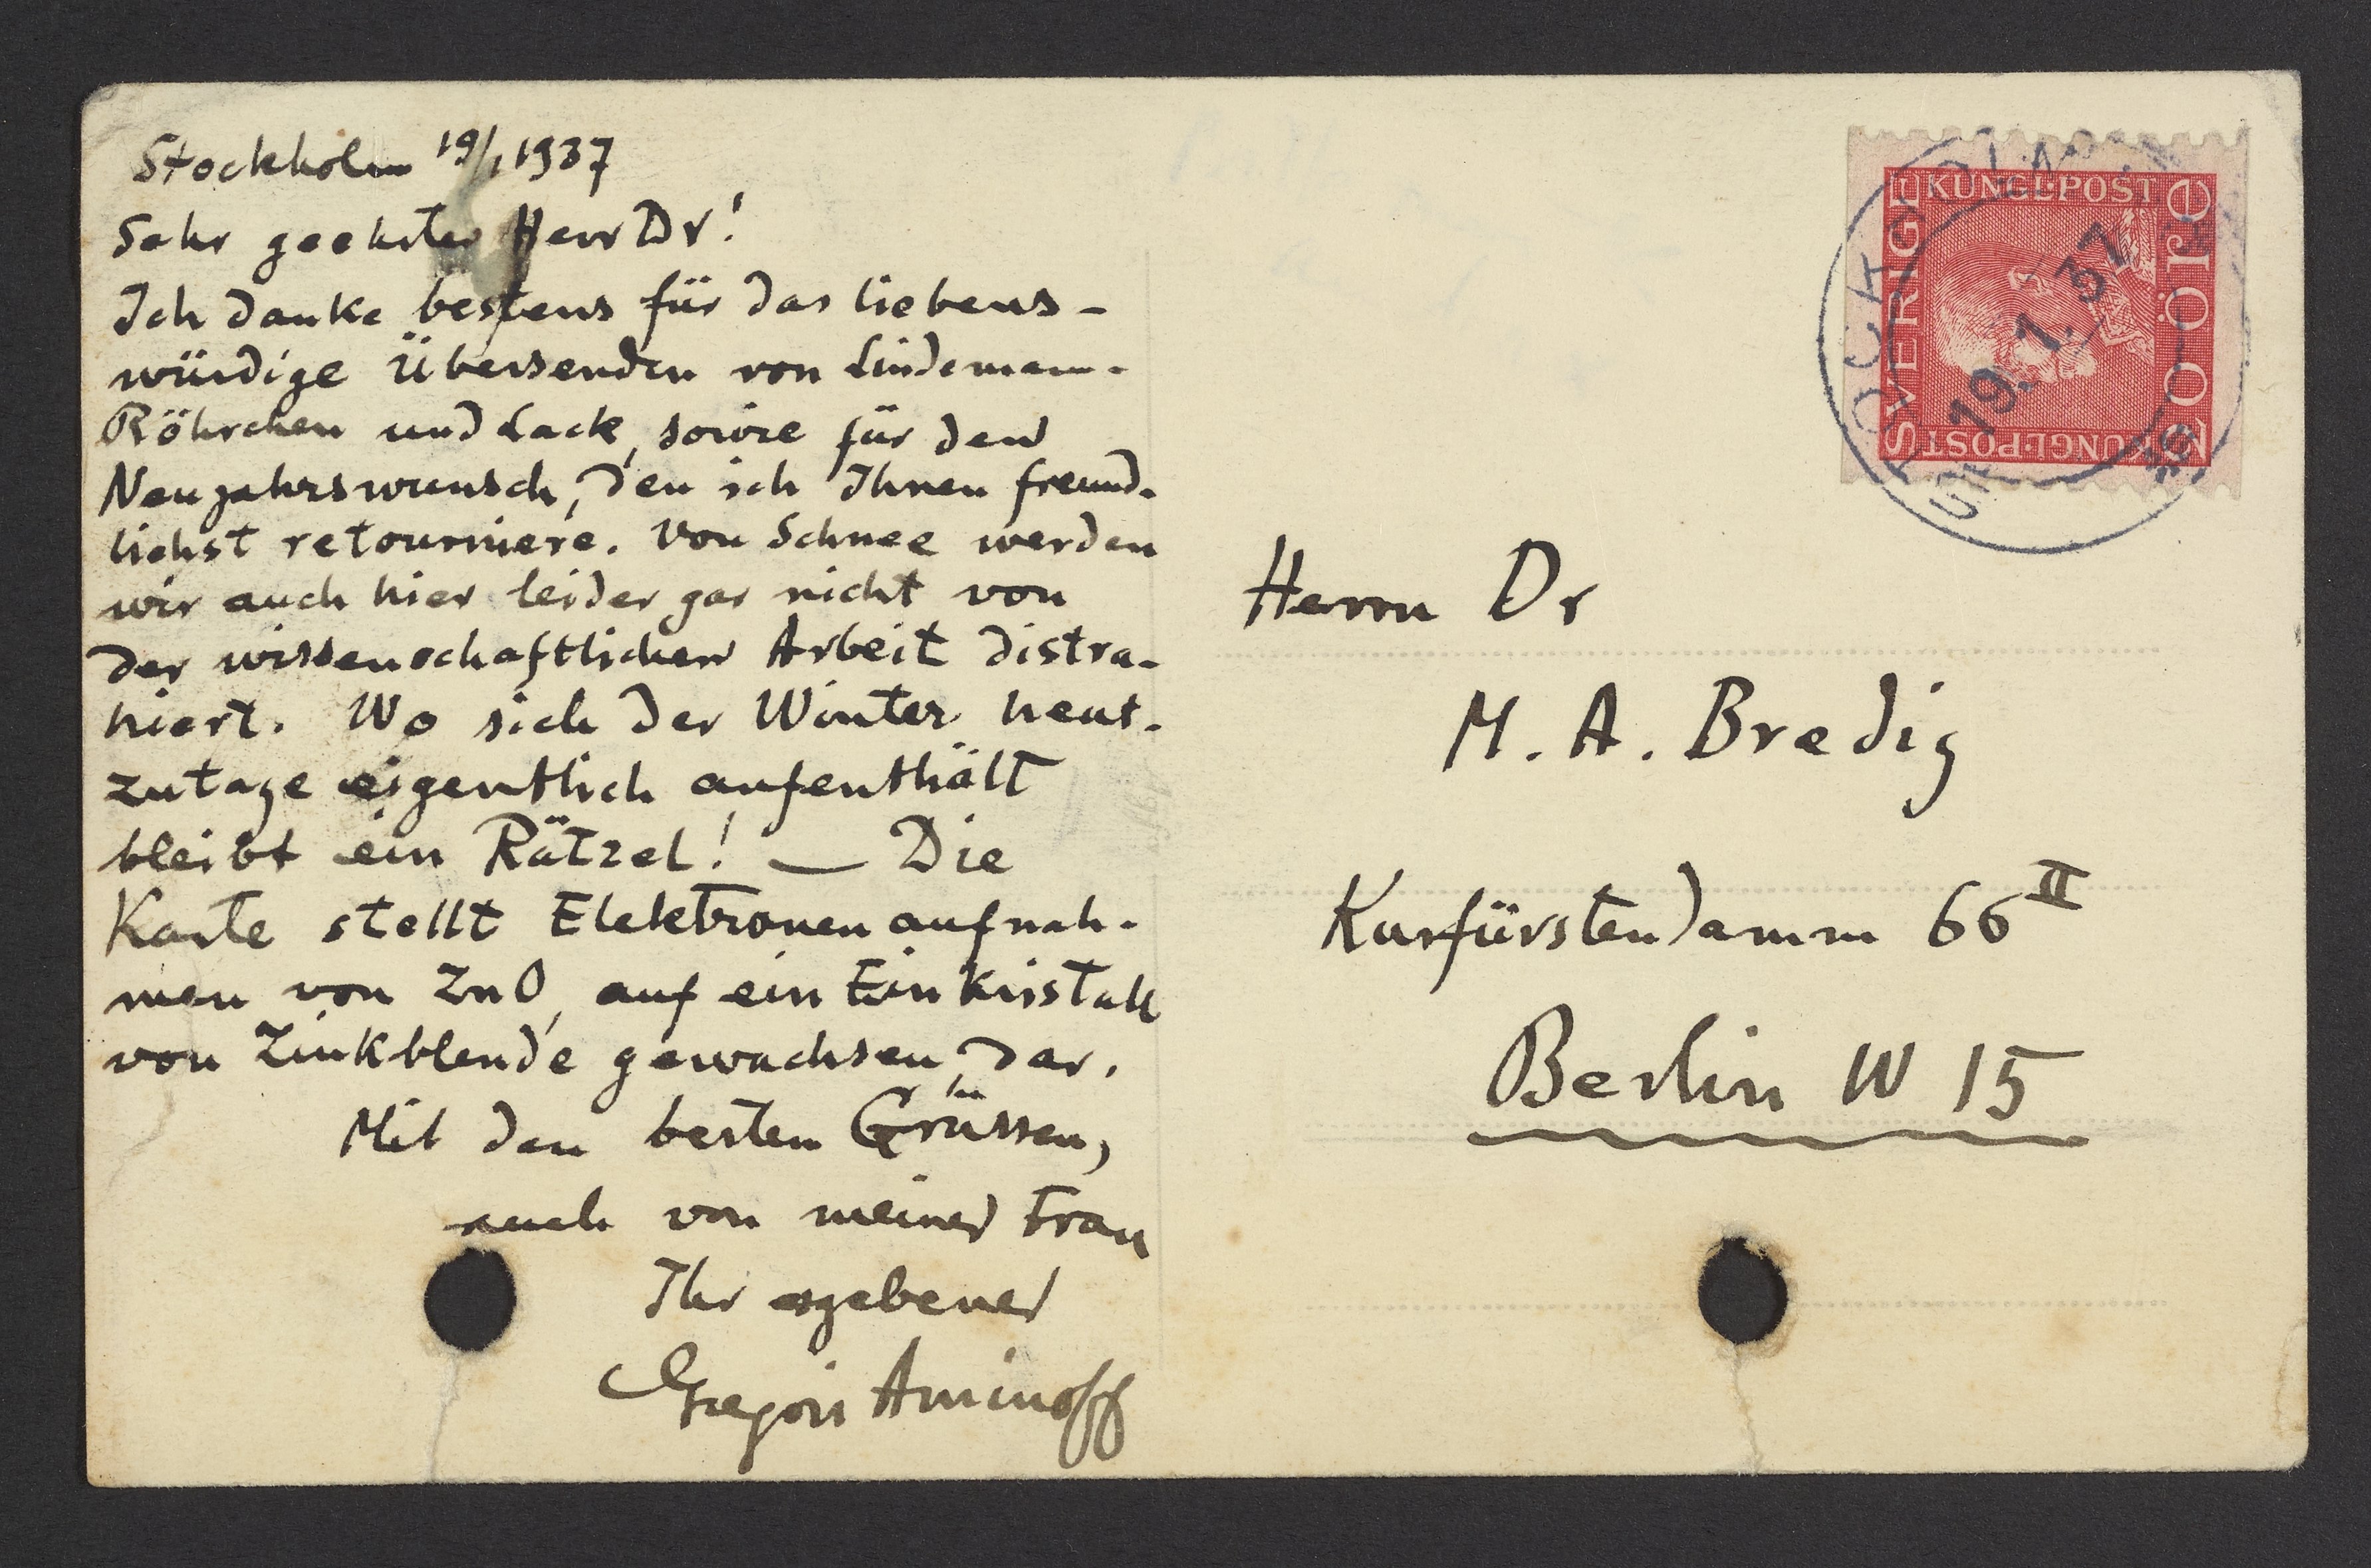 Stockholm 19/1 1937
Sehr geehrter Herr Dr!
Ich danke bestens für das liebens-
würdige Übersenden von Lindemann-
Röhrchen und Lack, sowie für den
Neujahrswunsch, den ich Ihnen freund-
lichst retourniere. Von Schnee werden
wir auch hier leider gar nicht von
der wissenschaftlichen Arbeit distra-
hiert. Wo sich der Winter heut-
zutage eigentlich aufenthält
bleibt ein Rätzel! — Die
Karte stellt Elektronenaufnah-
men von ZnO, auf ein Einkristall
von Zinkblende gewachsen, dar.
Mit den besten Grüssen,
auch von meiner Frau
Ihr ergebener
Gregori Aminoff
SVERIGE
KUNGL·POST
KUNGL·POST
öre
STOCKHOLM
19. 1. 37
Herrn Dr
M. A. Bredig
Kurfürstendamm 66 II
Berlin W 15